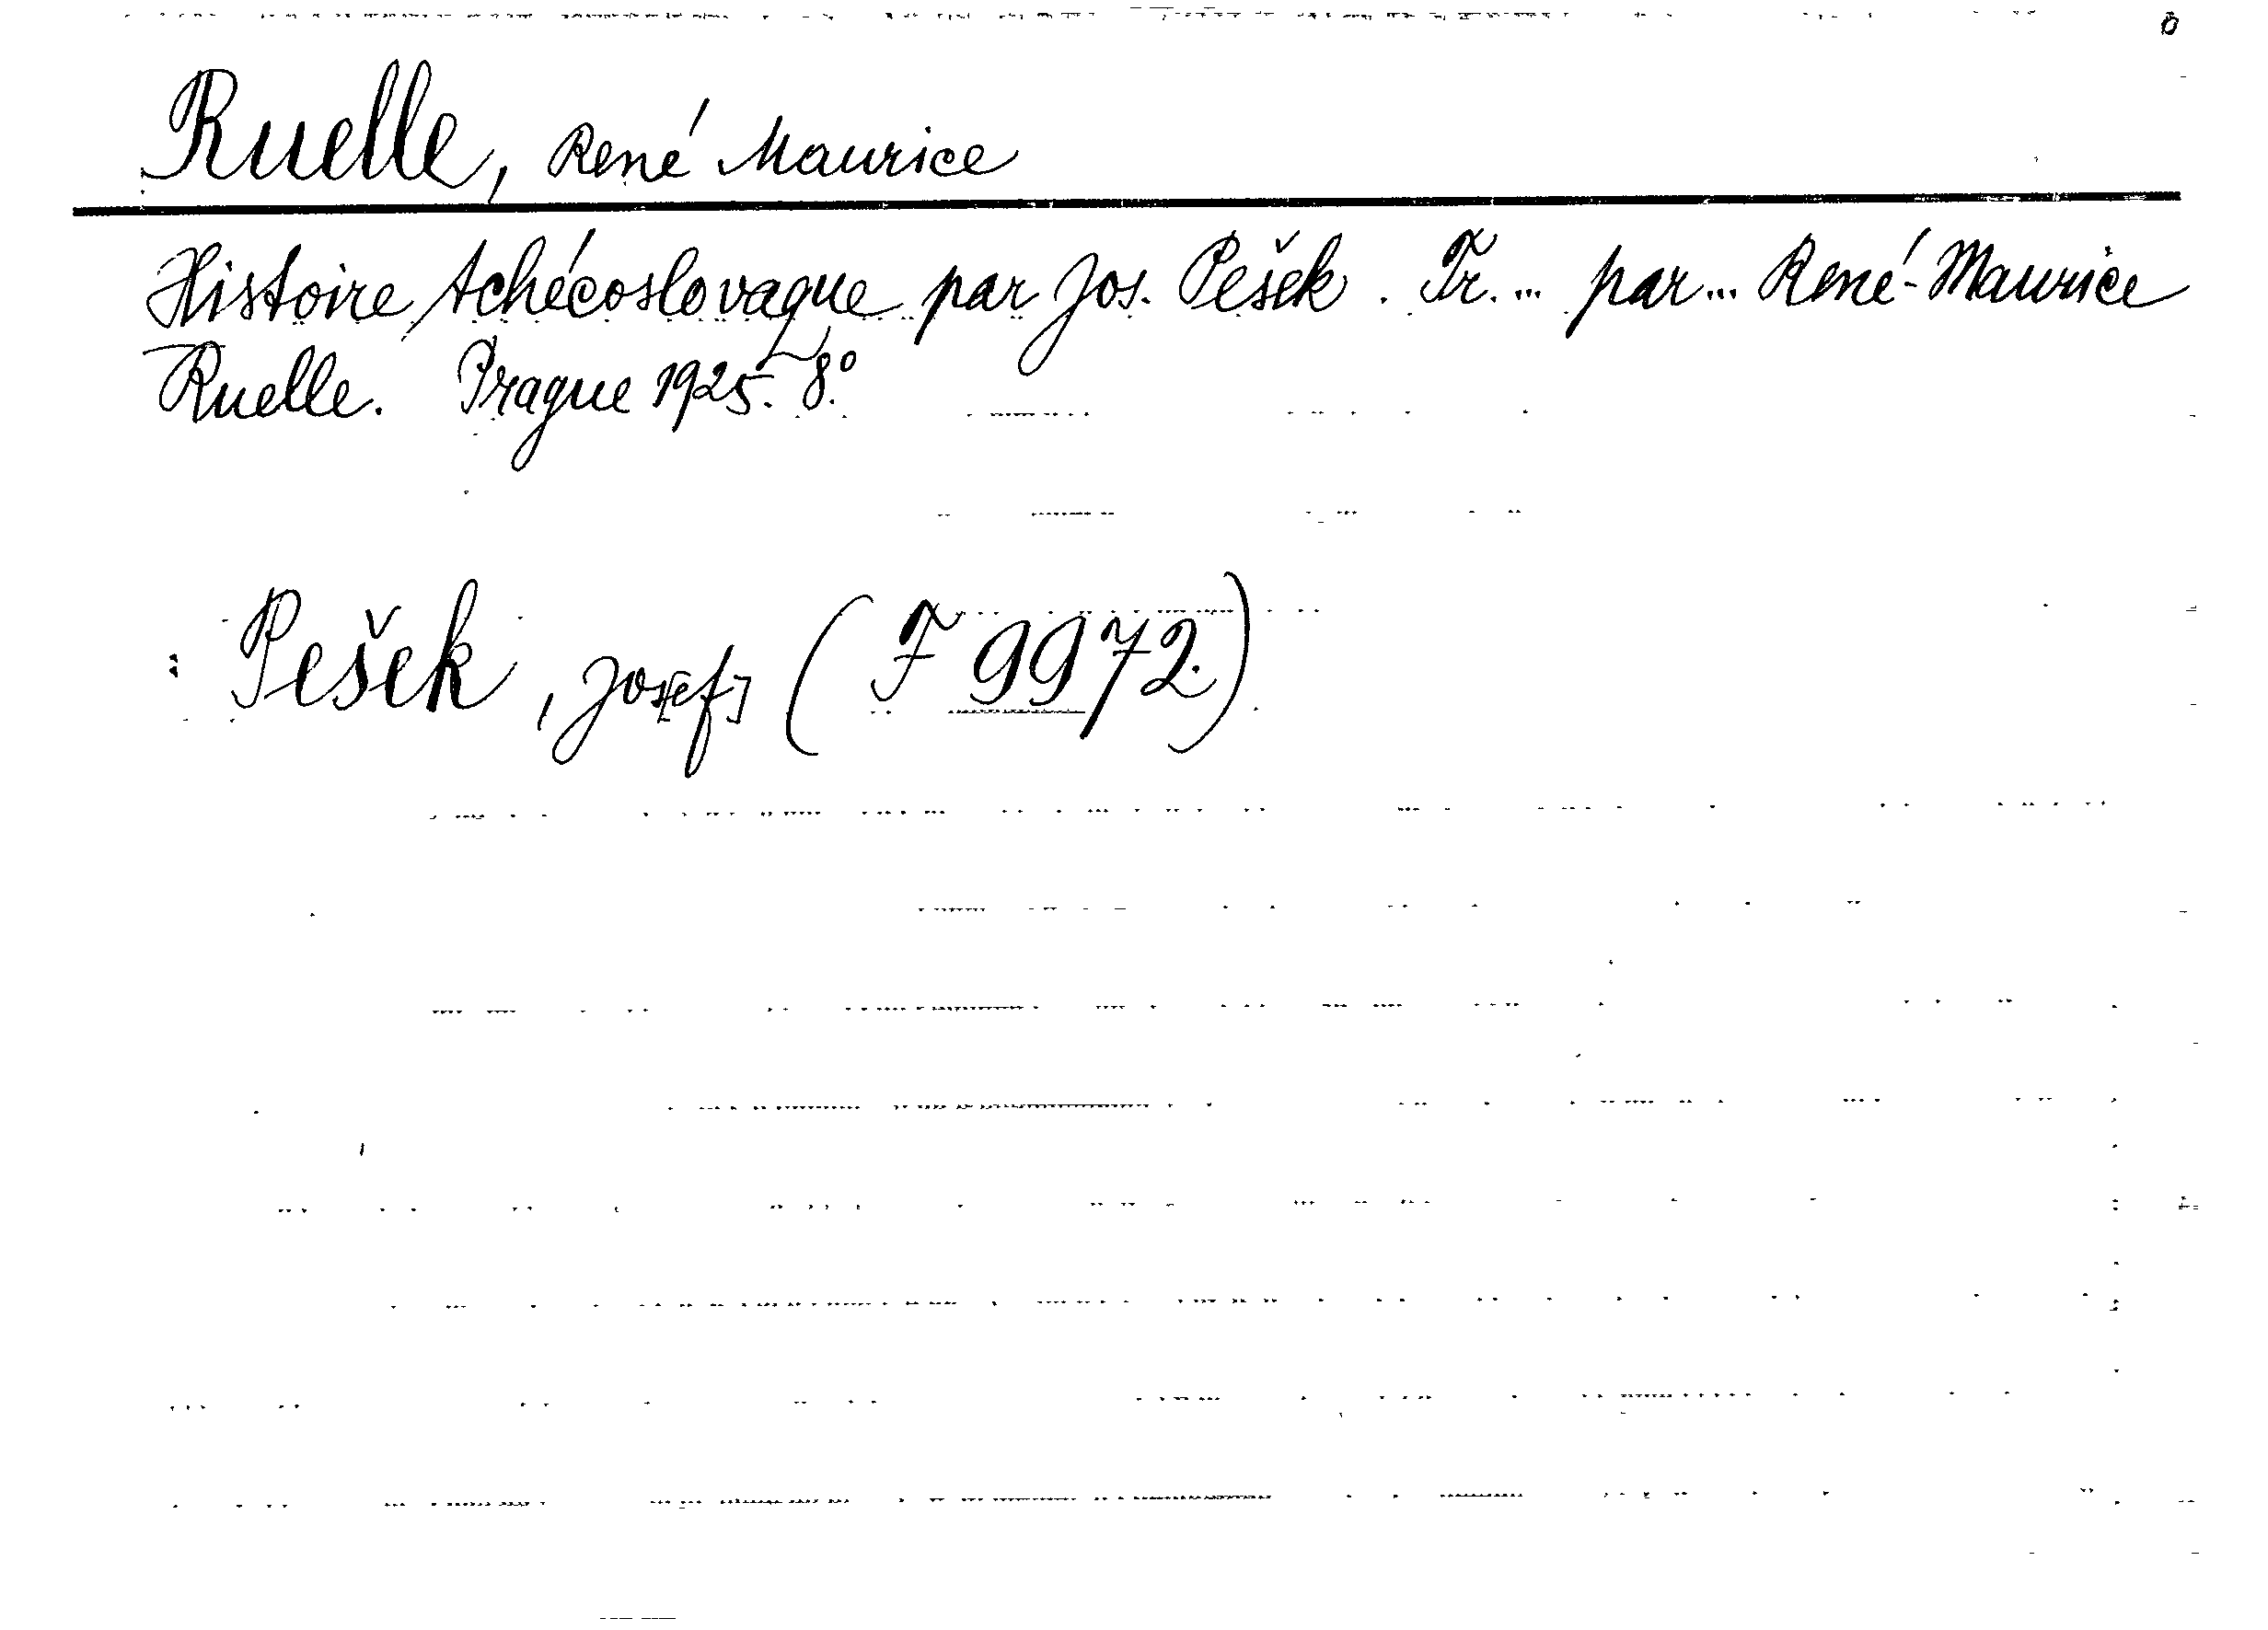 Ruelle, René Maurice
Histoire tchécoslovaque par Jos. Pešek. Tr.... par... René-Maurice
Ruelle. Prague 1925. 8.º
: Pešek, Jos[ef] (F 9972.)